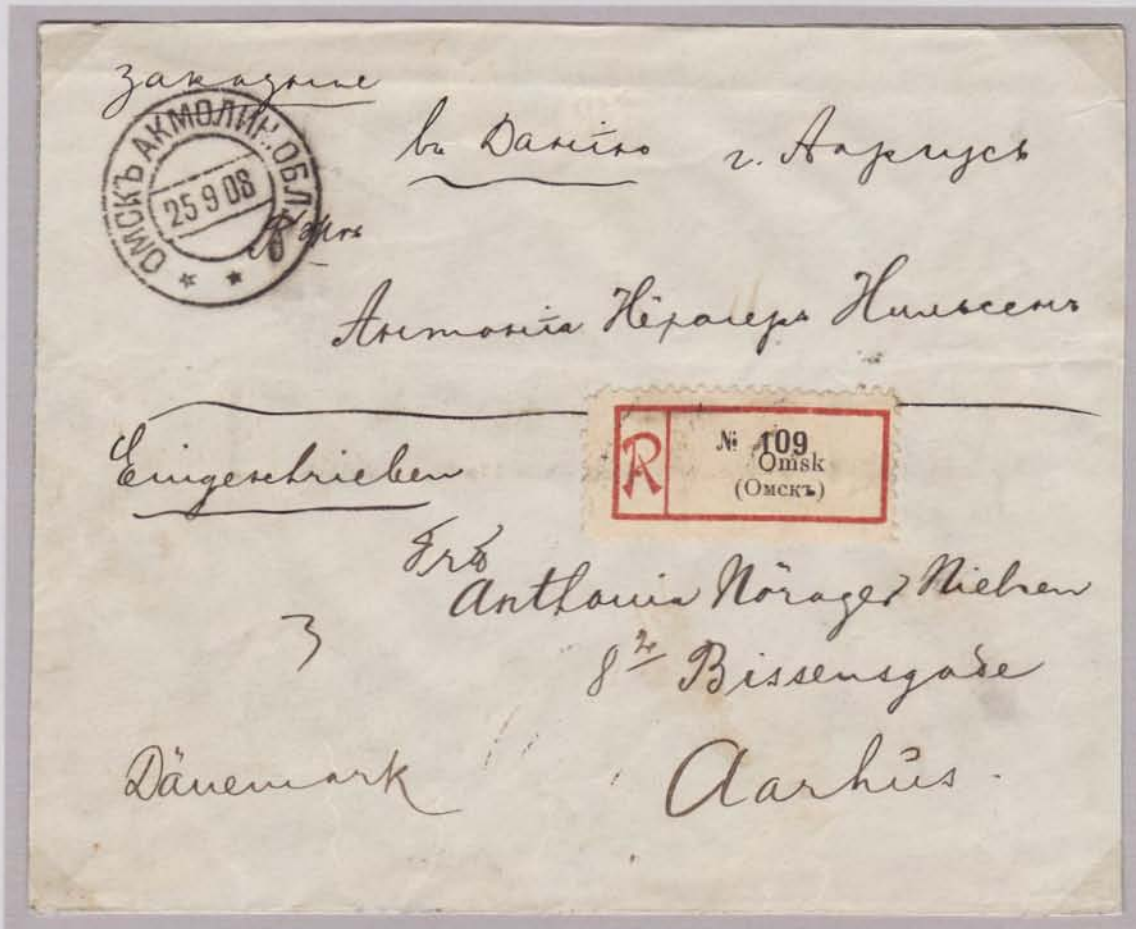 заказное
ОМСКЪ АКМОЛИН. ОБЛ.
25 9 08
въ Данію г. Ааргусъ
Антонія Нёрагеръ Нильсенъ
Eingeschrieben
R № 109
Omsk
(Омскъ)
Anthonia Nörager Nielsen
8 Bissensgade
Dänemark Aarhûs.